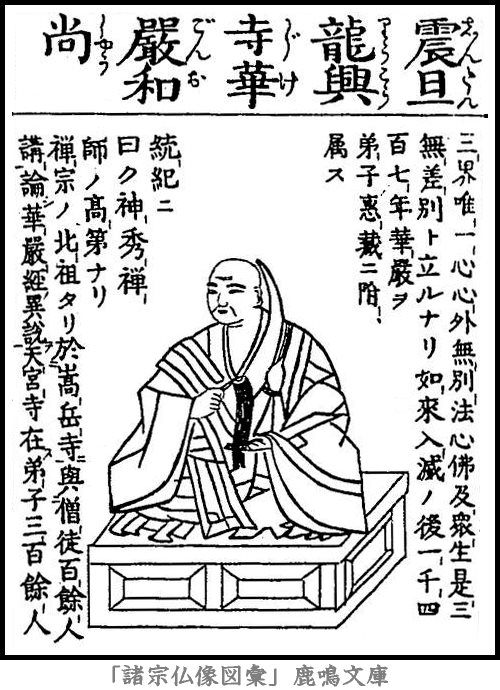 震旦
龍興
寺華
嚴和
尚
しんたん
りうこう
じけ
ごんお
しやう
三界唯一心心外無別法心佛及衆生是三
無差別ト立ルナリ如來入滅ノ後一千四
百七年華嚴ヲ
弟子惠藏ニ附
属ス
統紀ニ
曰ク神秀禅
師ノ髙第ナリ
禅宗ノ北祖タリ於嵩岳寺與僧徒百餘人
講論華嚴經異說天宮寺在弟子三百餘人
「諸宗仏像図彙」鹿鳴文庫